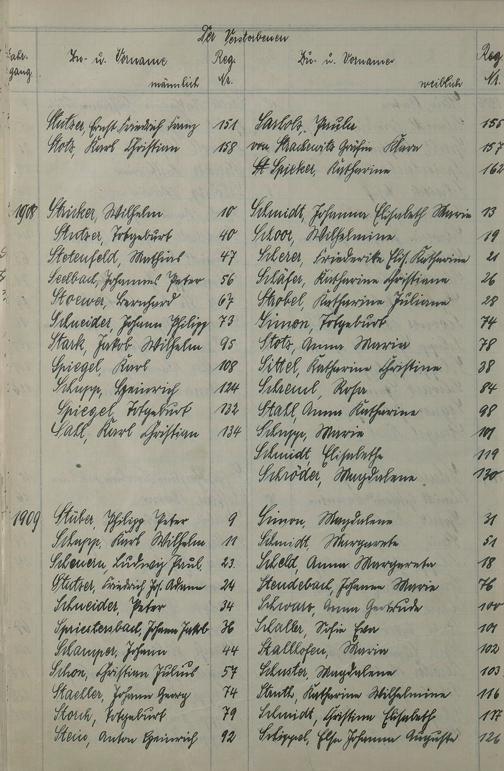 Der Verstorbenen
Jahr- gang Zu- u. Vorname männlich Reg. Nr. Zu- u. Vorname weiblich Reg. Nr.
Stutzer, Ernst Friedrich Franz 151 Sartols, Paula 155
Stotz, Karl Christian 158 von Strachwitz Gräfin Klara 157
St Spieker, Katharine 162
1908 Stricker, Wilhelm 10 Schmidt, Johanna Elisabeth Marie 13
Stutzer, Totgeburt 40 Schoor, Wilhelmine 19
Stetenfeld, Mathias 47 Scherer, Friederike Elis. Katharine 21
Seelbach, Johannes Peter 56 Schäfer, Katharine Christiane 26
Stoewer, Bernhard 67 Strobel, Katharine Juliane 28
Schneider, Johann Philipp 73 Simon, Totgeburt 74
Stark, Jakob Wilhelm 95 Stotz, Anna Maria 78
Spiegel, Karl 108 Sittel, Katharine Christine 38
Schupp, Heinrich 124 Rosa 84
Spiegel, Totgeburt 132 Stahl Anna Katharine 98
Karl Christian 134 Schupp, Marie 101
Schmidt, Elisabethe 119
Schröder, Magdalene 130
1909 Stüber, Philipp Peter 9 Simon, Magdalene 31
Schupp, Karl Wilhelm 11 Schmidt Margarete 51
Scheuern, Ludwig Paul 23 Scheld, Anna Margarete 18
Stutzer, Friedrich Jos. Adam 24 Stendebach, Johanna Maria 76
Schneider, Peter 34 Schwarz, Anna Gertrude 100
Spriestersbach, Johann Jakob 36 Schaller, Sofie Eva 101
Schamper, Johann 44 Stallhofen, Maria 102
Schön, Christian Julius 57 Schuster, Magdalene 103
Staehler, Johann Georg 74 Struth, Katharine Wilhelmine 116
Storch, Totgeburt 79 Schmidt, Christina Elisabeth 117
Stein, Anton Heinrich 92 Schippel, Elsa Johanna Auguste 126